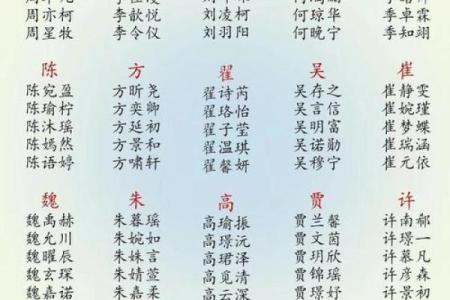 周亦柯 季歆悦 刘凌柯 何琼华 季卓霖
周星牧 季令仪 刘羽阳 何晚宁 季知翊
陈 方 翟 吴 崔
陈宛盈 方昕尧 翟诗芮 吴存之 崔静雯
陈瑜柠 方奕卿 翟珞怡 吴言信 崔婉瑾
陈沐瑶 方延初 翟子莹 吴明富 崔梦蝶
陈嫣然 方景和 翟温琪 吴诺勋 崔瑞涵
陈语婷 方啸轩 翟馨妍 吴穆宁 崔元依
魏 朱 高 贾 许
魏禹赫 朱暮瑶 高瑜沅 贾兰馨 许南郗
魏允川 朱婉如 高璟元 贾文茵 许璟一
魏曜辰 朱姝言 高君泽 贾欣欣 许慕凡
魏玄琛 朱婧萱 高觅清 贾锦瑶 许彦森
魏嘉诺 朱嘉柔 高云深 贾璟妤 许景初